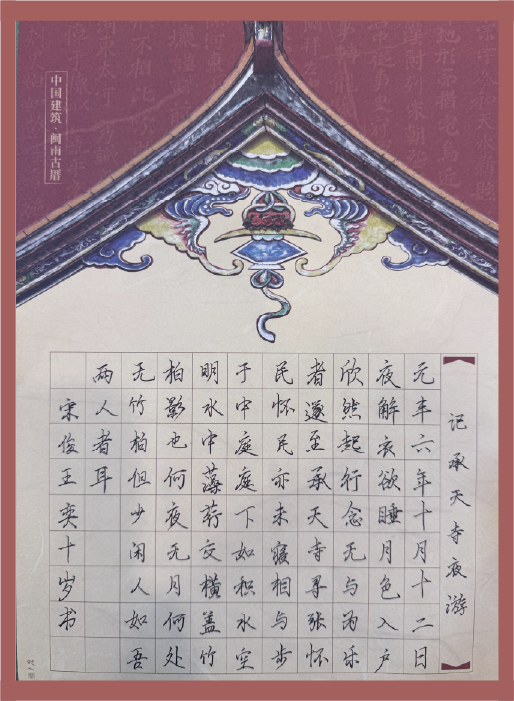 中国建筑·闽南古厝
记承天寺夜游
元丰六年十月十二日
夜解衣欲睡月色入户
欣然起行念无与为乐
者遂至承天寺寻张怀
民怀民亦未寝相与步
于中庭庭下如积水空
明水中藻荇交横盖竹
柏影也何夜无月何处
无竹柏但少闲人如吾
两人者耳
宋俊王奕十岁书